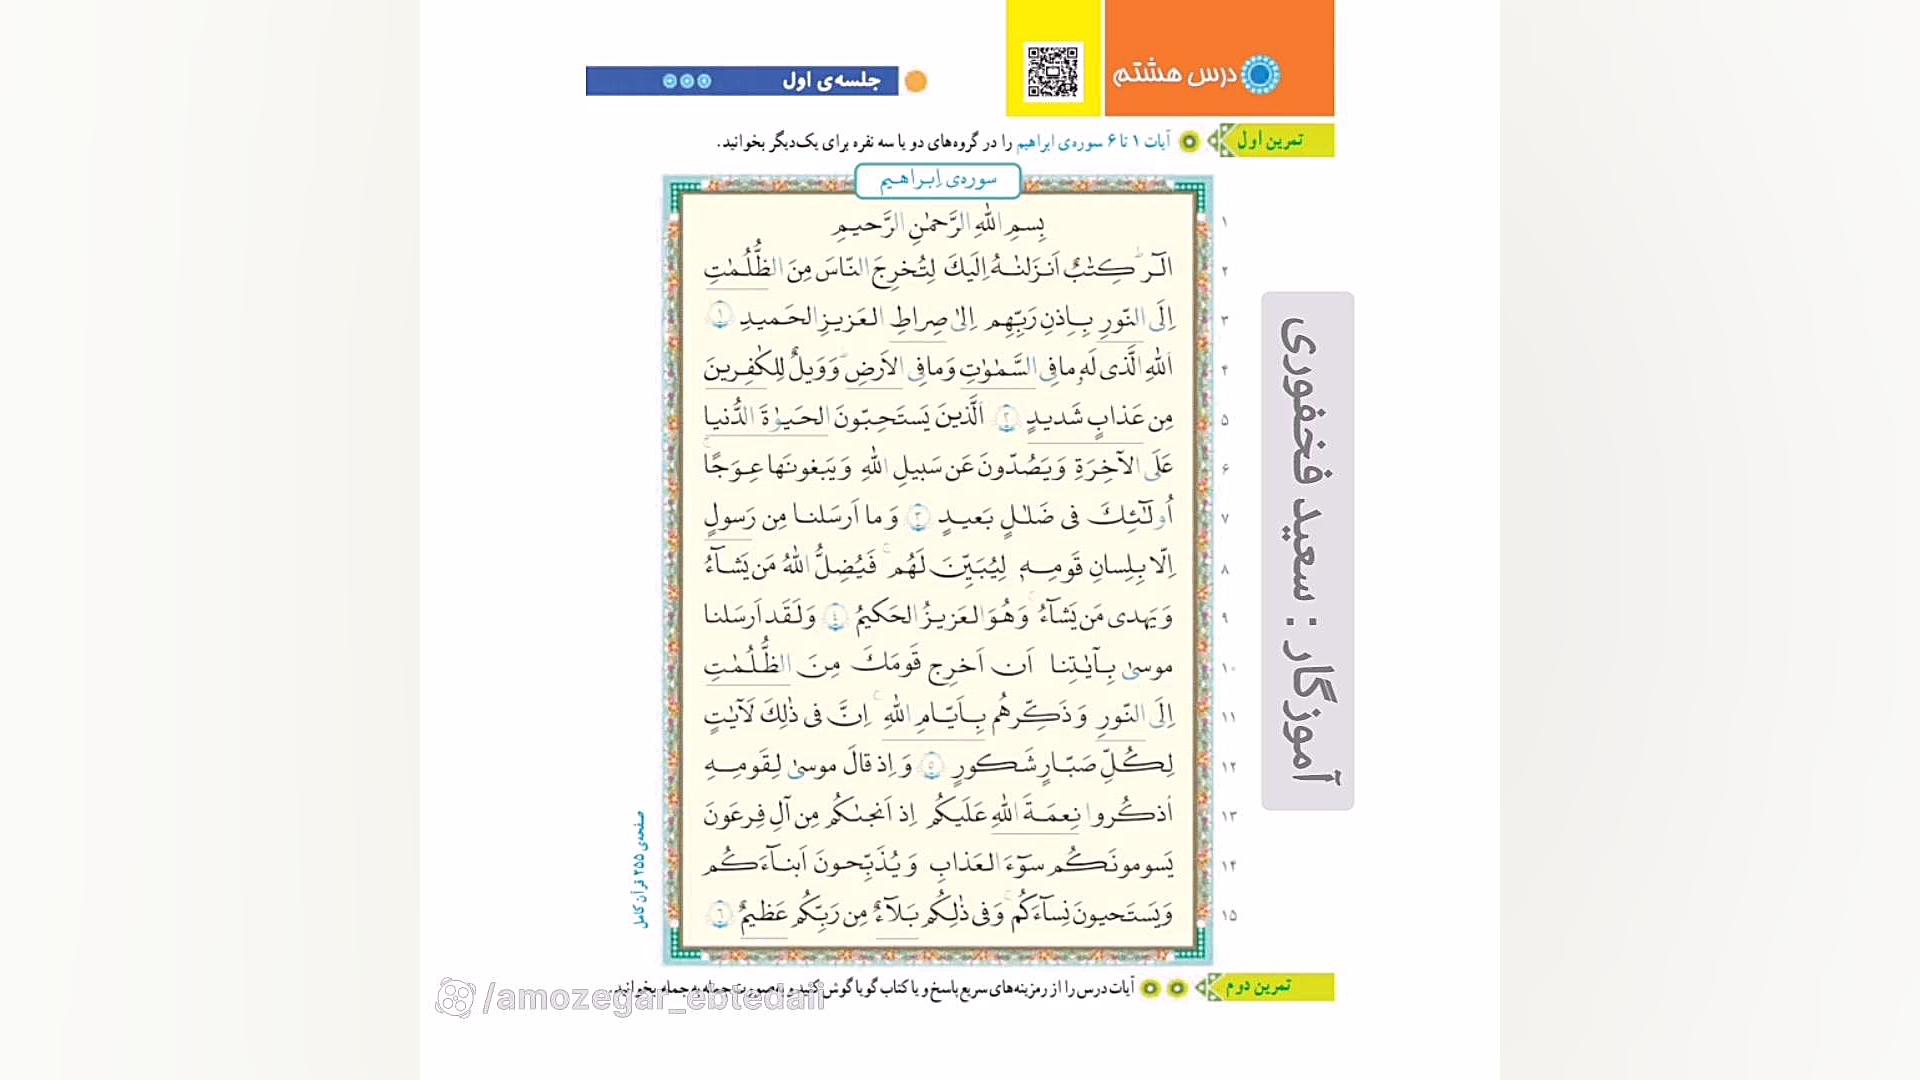 درس هشتم
جلسه‌ی اول
تمرین اول
آیات ۱ تا ۶ سوره‌ی ابراهیم را در گروه‌های دو یا سه نفره برای یک‌دیگر بخوانید.
سوره‌ی اِبراهیم
۱ بِسمِ اللّٰهِ الرَّحمٰنِ الرَّحیمِ
۲ الٓرٰ ۚ كِتٰبٌ اَنزَلنٰهُ اِلَیكَ لِتُخرِجَ النّاسَ مِنَ الظُّلُمٰتِ
۳ اِلَی النّورِ بِاِذنِ رَبِّهِم اِلیٰ صِراطِ العَزیزِ الحَمیدِ ﴿١﴾
۴ اَللّٰهِ الَّذی لَهٗ ما فِی السَّمٰوٰتِ وَ ما فِی الاَرضِ ۗ وَ وَیلٌ لِلكٰفِرینَ
۵ مِن عَذابٍ شَدیدٍ ﴿٢﴾ اَلَّذینَ یَستَحِبّونَ الحَیوٰةَ الدُّنیا
۶ عَلَی الآخِرَةِ وَ یَصُدّونَ عَن سَبیلِ اللّٰهِ وَ یَبغونَها عِوَجًا ۚ
۷ اُولٰٓئِكَ فی ضَلٰلٍ بَعیدٍ ﴿٣﴾ وَ ما اَرسَلنا مِن رَسولٍ
۸ اِلّا بِلِسانِ قَومِهٖ لِیُبَیِّنَ لَهُم ۖ فَیُضِلُّ اللّٰهُ مَن یَشآءُ
۹ وَ یَهدی مَن یَشآءُ ۚ وَ هُوَ العَزیزُ الحَكیمُ ﴿٤﴾ وَ لَقَد اَرسَلنا
۱۰ موسیٰ بِـآیٰتِنا اَن اَخرِج قَومَكَ مِنَ الظُّلُمٰتِ
۱۱ اِلَی النّورِ وَ ذَكِّرهُم بِاَیّامِ اللّٰهِ ۚ اِنَّ فی ذٰلِكَ لَآیٰتٍ
۱۲ لِكُلِّ صَبّارٍ شَكورٍ ﴿٥﴾ وَ اِذ قالَ موسیٰ لِقَومِهِ
۱۳ اُذكُروا نِعمَةَ اللّٰهِ عَلَیكُم اِذ اَنجٰىكُم مِن آلِ فِرعَونَ
۱۴ یَسومونَكُم سوٓءَ العَذابِ وَ یُذَبِّحونَ اَبنآءَكُم
۱۵ وَ یَستَحیونَ نِسآءَكُم ۚ وَ فی ذٰلِكُم بَلآءٌ مِن رَبِّكُم عَظیمٌ ﴿٦﴾
صفحه‌ی ۲۵۵ قرآن کامل
آموزگار : سعید فخفوری
تمرین دوم
آیات درس را از رمزینه‌های سریع پاسخ و یا کتاب گویا گوش کنید و به صورت جمله به جمله بخوانید.
/amozegar_ebtedaii